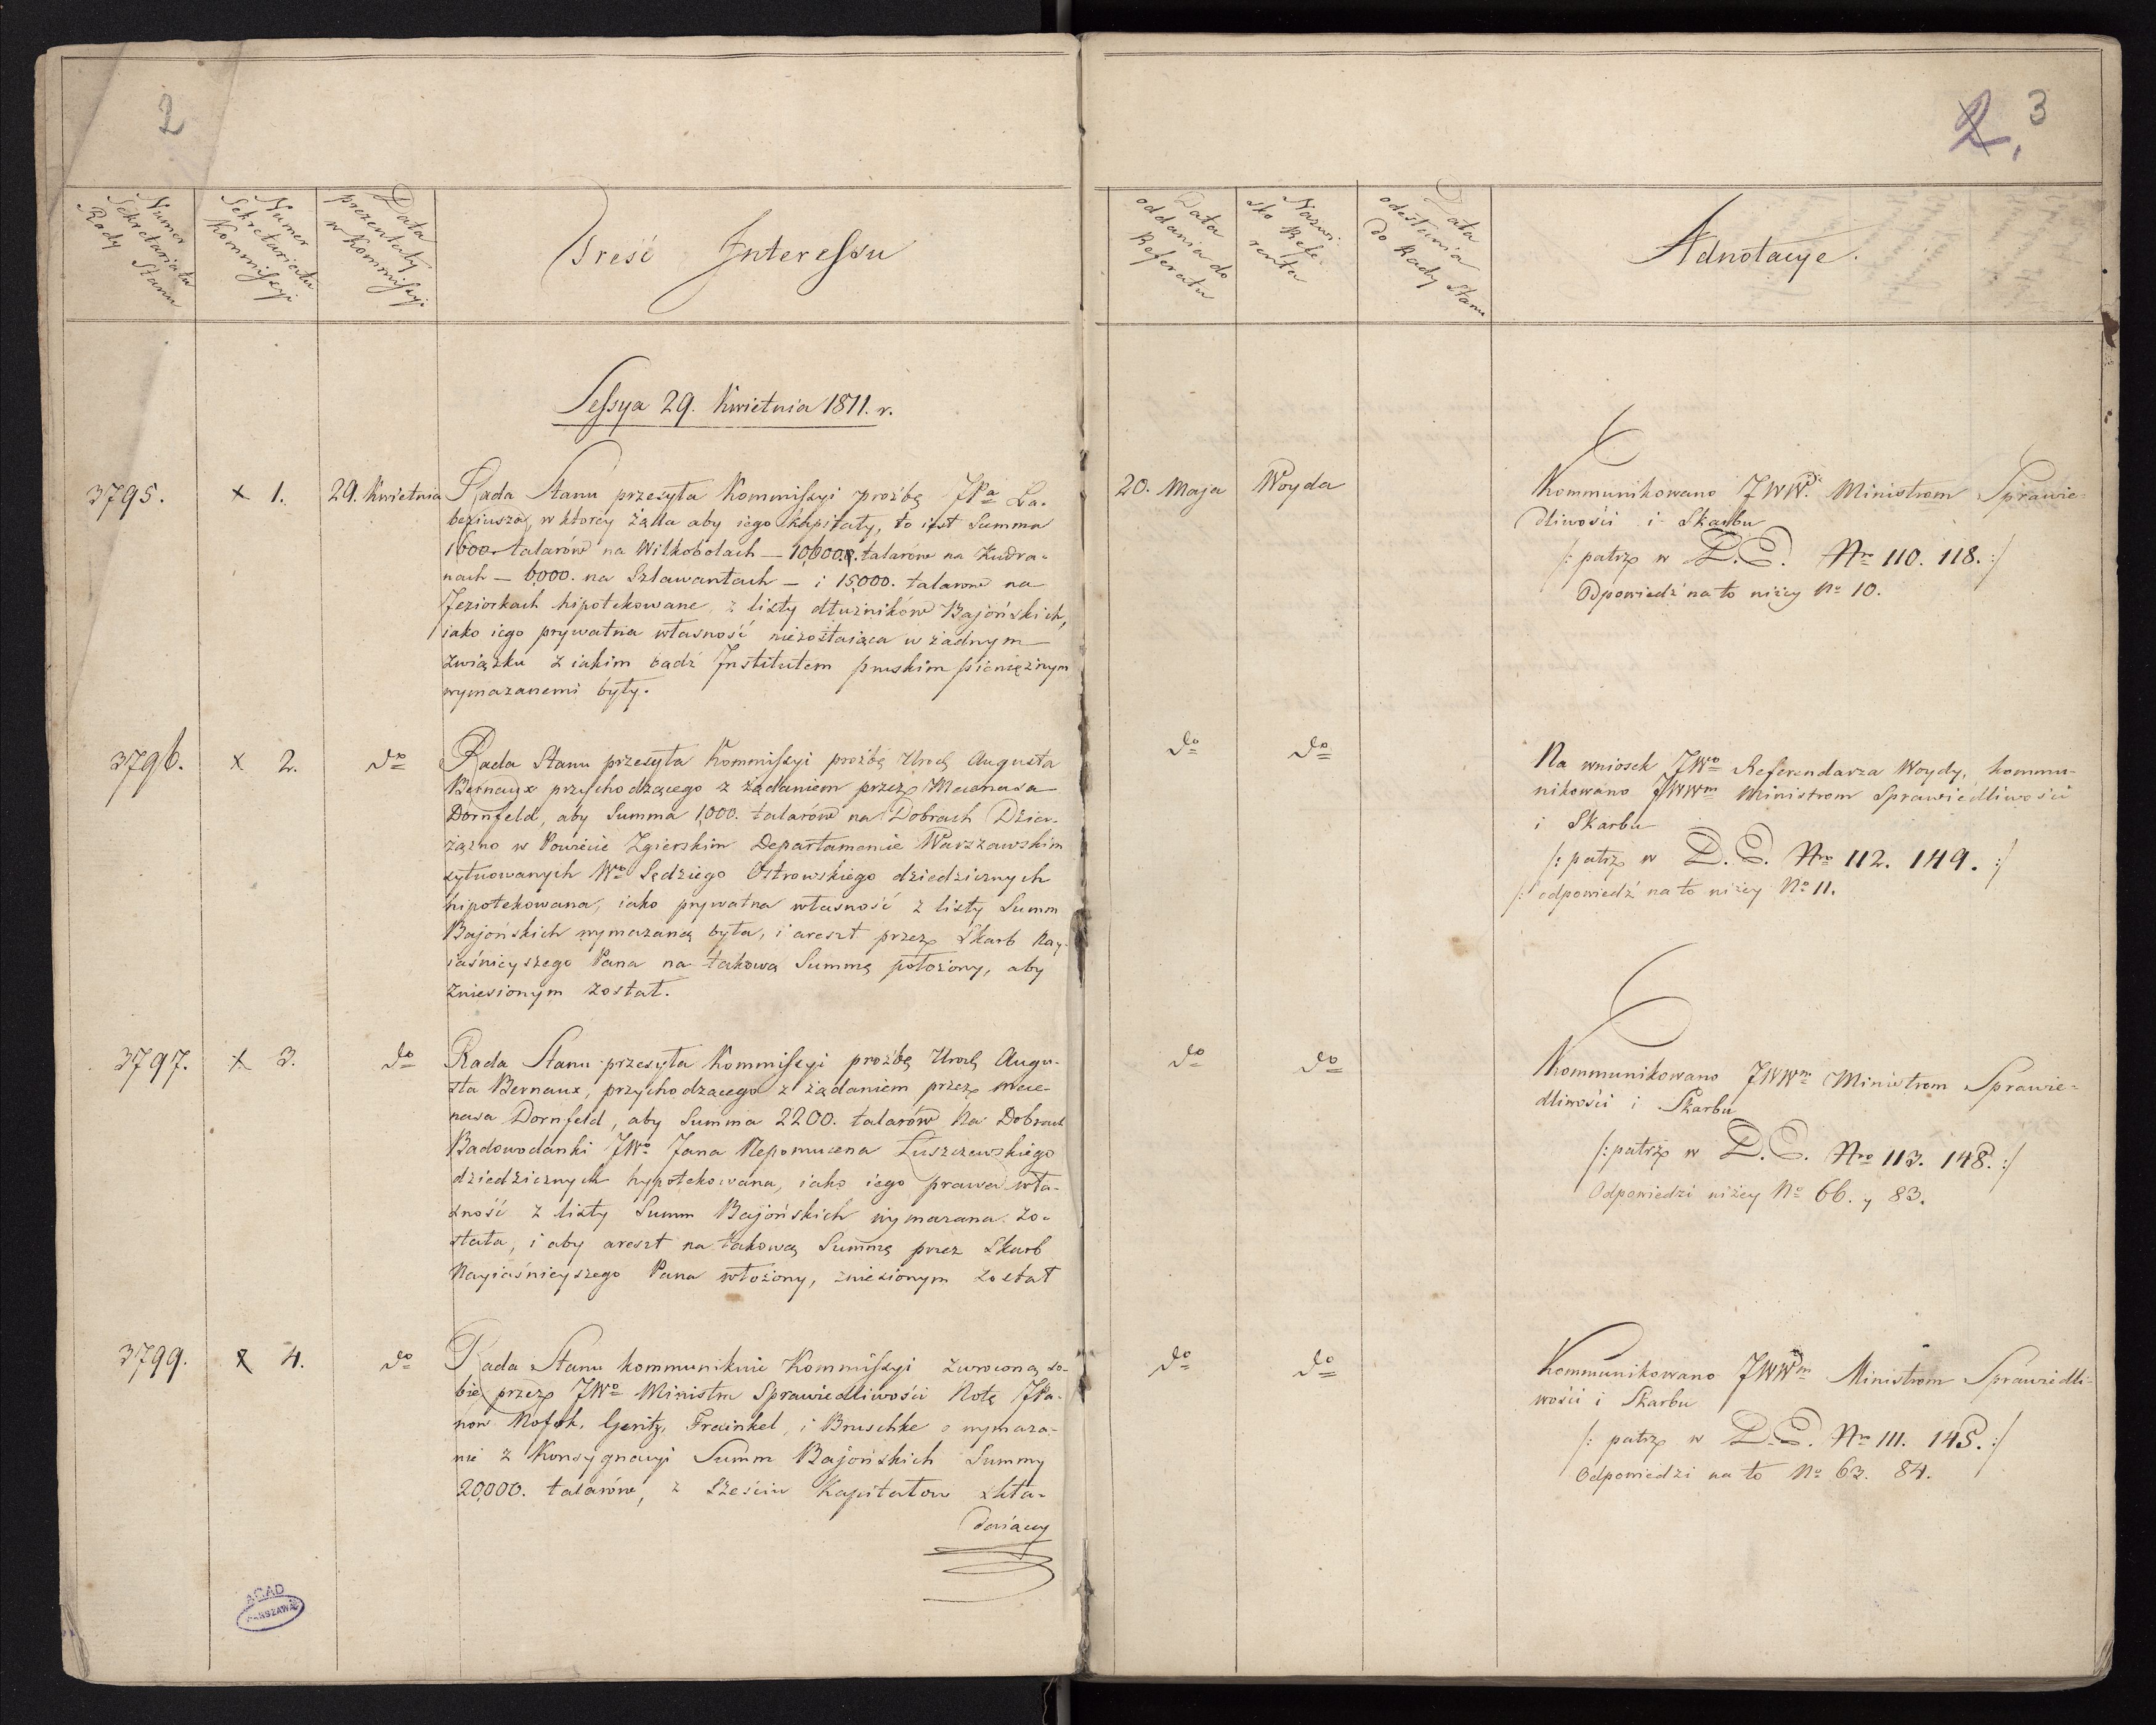 2
2. 3
Numer
Sekretariatu
Rady Stanu
Numer
Sekretariatu
Kommissyi
Data
prezentaty
w Kommissyi
Treść Interessu
Data
oddania do
Referatu
Nazwi-
sko Refe-
renta
Data
odesłania
do Rady Stanu
Adnotacye.
Sessya 29. Kwietnia 1811. r.
3795. x 1. 29. Kwietnia
Rada Stanu przesyła Kommissyi prożbę JPa La-
beziusza, w ktorey żąda aby iego kapitały, to iest Summa
1600. talarów na Wilkobolach – 10,000. talarów na Kudra-
nach – 6,000. na Szlawantach – i 15,000. talarow na
Jeziorkach hipotekowane, z listy dłużników Bajońskich,
iako iego prywatna własność niezostaiąca w żadnym
związku z iakim bądź Institutem pruskim pieniężnym
wymazanemi były.
20. Maja Woyda
Kommunikowano JWW. Ministrom Sprawie-
dliwości i Skarbu
/: patrz w D.C. Nro 110. 118. :/
Odpowiedź na to niżey No 10.
3796. x 2. do
Rada Stanu przesyła Kommissyi prożbę Urodz. Augusta
Bernaux przychodzącego z żądaniem przez Mecenasa
Dornfeld, aby Summa 1,000. talarów na Dobrach Dzier-
żązno w Powiecie Zgierskim Departamencie Warszawskim
sytuowanych Wo Sędziego Ostrowskiego dziedzicznych
hipotekowana, iako prywatna własność z listy Summ
Bajońskich wymazaną była, i areszt przez Skarb Nay-
iaśnieyszego Pana na takową Summę położony, aby
zniesionym został.
do do
Na wniosek JWo Referendarza Woydy, kommu-
nikowano JWWm Ministrom Sprawiedliwości
i Skarbu
/: patrz w D.C. Nro 112. 149. :/
/: odpowiedź na to niżey No 11.
3797. x 3. do
Rada Stanu przesyła Kommissyi prożbę Urodz. Augu-
sta Bernaux, przychodzącego z żądaniem przez Mece-
nasa Dornfeld, aby Summa 2200. talarów Na Dobrach
Badowodanki JWo Jana Nepomucena Łuszczewskiego
dziedzicznych hypotekowana, iako iego prawa wła-
sność z listy Summ Bajońskich wymazana zo-
stała, i aby areszt na takową Summę przez Skarb
Nayiaśnieyszego Pana włożony, zniesionym został
do do
Kommunikowano JWWm Ministrom Sprawie-
dliwości i Skarbu
/: patrz w D.C. Nro 113. 148. :/
Odpowiedzi niżey No 66. y 83.
3799. x 4. do
Rada Stanu kommunikuie Kommissyi zwroconą so-
bie przez JWo Ministra Sprawiedliwości Notę JPa-
now Geritz, Frainkel, i Bruschke o wymaza-
nie z Konsygnacyi Summ Bajońskich Summy
20,000. talarów, z sześciu Kapitałow skła-
daiącey
do do
Kommunikowano JWWm Ministrom Sprawiedli-
wości i Skarbu
/: patrz w D.C. Nro 111. 145. :/
Odpowiedzi na to No 63. 84.
AGAD
WARSZAWA